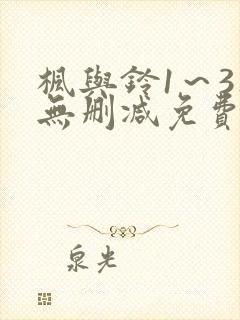 楓與鈴1~3
無刪減免費
泉光